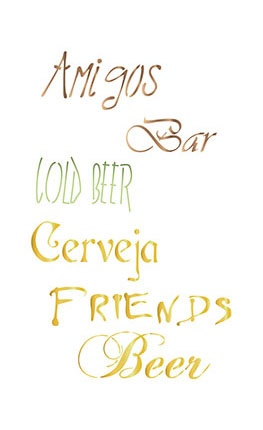 Amigos
Bar
COLD BEER
Cerveja
FRIENDS
Beer